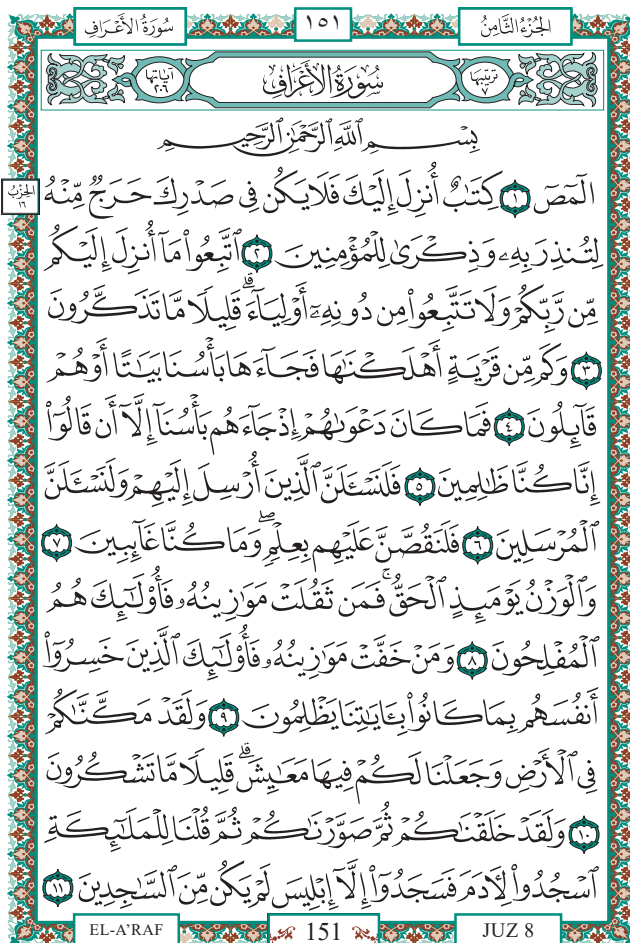 سُورَةُ الأَعْرَافِ
١٥١
الجُزْءُ الثَّامِنُ
ترتيبها ٧
سُورَةُ الأَعْرَافِ
آياتها ٢٠٦
بِسْمِ ٱللَّهِ ٱلرَّحْمَٰنِ ٱلرَّحِيمِ
الٓمٓصٓ ١ كِتَٰبٌ أُنزِلَ إِلَيْكَ فَلَا يَكُن فِى صَدْرِكَ حَرَجٌ مِّنْهُ
الحِزْبُ ١٦
لِتُنذِرَ بِهِۦ وَذِكْرَىٰ لِلْمُؤْمِنِينَ ٢ ٱتَّبِعُوا۟ مَآ أُنزِلَ إِلَيْكُم
مِّن رَّبِّكُمْ وَلَا تَتَّبِعُوا۟ مِن دُونِهِۦٓ أَوْلِيَآءَ ۗ قَلِيلًا مَّا تَذَكَّرُونَ
٣ وَكَم مِّن قَرْيَةٍ أَهْلَكْنَٰهَا فَجَآءَهَا بَأْسُنَا بَيَٰتًا أَوْ هُمْ
قَآئِلُونَ ٤ فَمَا كَانَ دَعْوَىٰهُمْ إِذْ جَآءَهُم بَأْسُنَآ إِلَّآ أَن قَالُوٓا۟
إِنَّا كُنَّا ظَٰلِمِينَ ٥ فَلَنَسْـَٔلَنَّ ٱلَّذِينَ أُرْسِلَ إِلَيْهِمْ وَلَنَسْـَٔلَنَّ
ٱلْمُرْسَلِينَ ٦ فَلَنَقُصَّنَّ عَلَيْهِم بِعِلْمٍ ۖ وَمَا كُنَّا غَآئِبِينَ ٧
وَٱلْوَزْنُ يَوْمَئِذٍ ٱلْحَقُّ ۚ فَمَن ثَقُلَتْ مَوَٰزِينُهُۥ فَأُو۟لَٰٓئِكَ هُمُ
ٱلْمُفْلِحُونَ ٨ وَمَنْ خَفَّتْ مَوَٰزِينُهُۥ فَأُو۟لَٰٓئِكَ ٱلَّذِينَ خَسِرُوٓا۟
أَنفُسَهُم بِمَا كَانُوا۟ بِـَٔايَٰتِنَا يَظْلِمُونَ ٩ وَلَقَدْ مَكَّنَّٰكُمْ
فِى ٱلْأَرْضِ وَجَعَلْنَا لَكُمْ فِيهَا مَعَٰيِشَ ۗ قَلِيلًا مَّا تَشْكُرُونَ
١٠ وَلَقَدْ خَلَقْنَٰكُمْ ثُمَّ صَوَّرْنَٰكُمْ ثُمَّ قُلْنَا لِلْمَلَٰٓئِكَةِ
ٱسْجُدُوا۟ لِـَٔادَمَ فَسَجَدُوٓا۟ إِلَّآ إِبْلِيسَ لَمْ يَكُن مِّنَ ٱلسَّٰجِدِينَ ١١
EL-A'RAF
151
JUZ 8